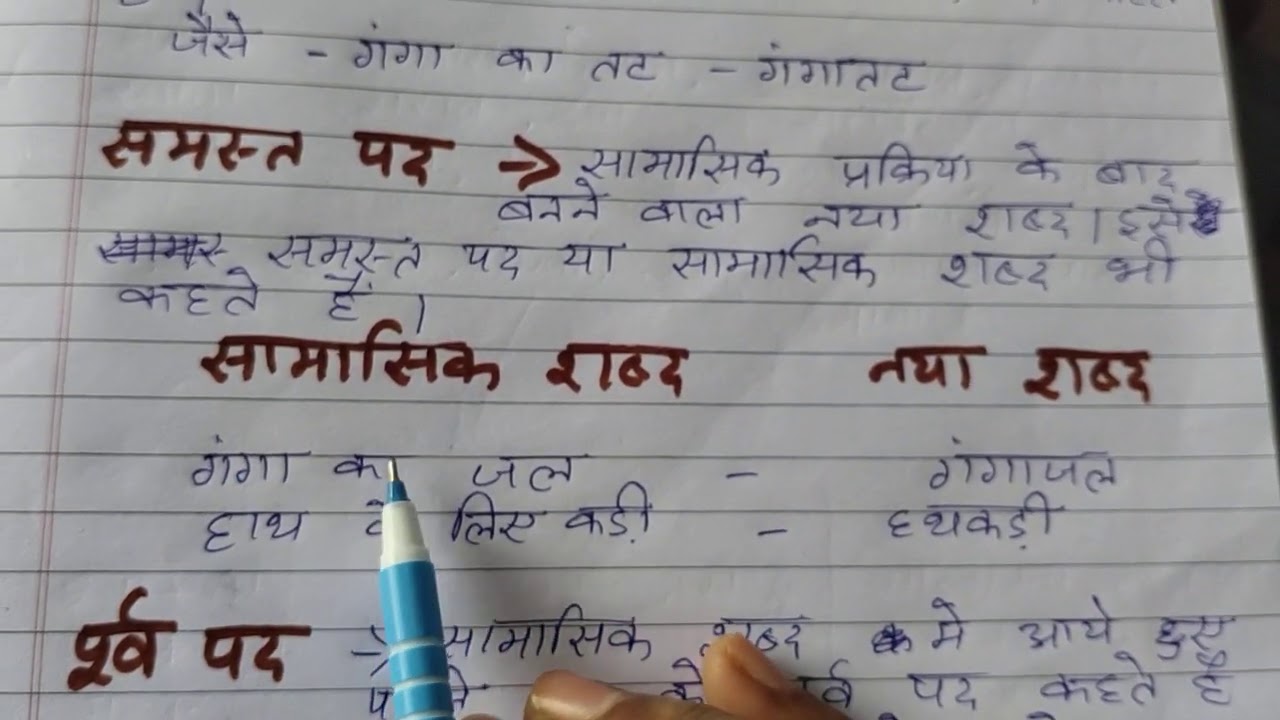 जैसे - गंगा का तट - गंगातट
समस्त पद → सामासिक प्रक्रिया के बाद
बनने वाला नया शब्द। इसे
समस्त पद या सामासिक शब्द भी
कहते हैं।
सामासिक शब्द नया शब्द
गंगा का जल - गंगाजल
हाथ लिए कड़ी - हथकड़ी
पूर्व पद → सामासिक शब्द मे आये हुए
पद कहते है